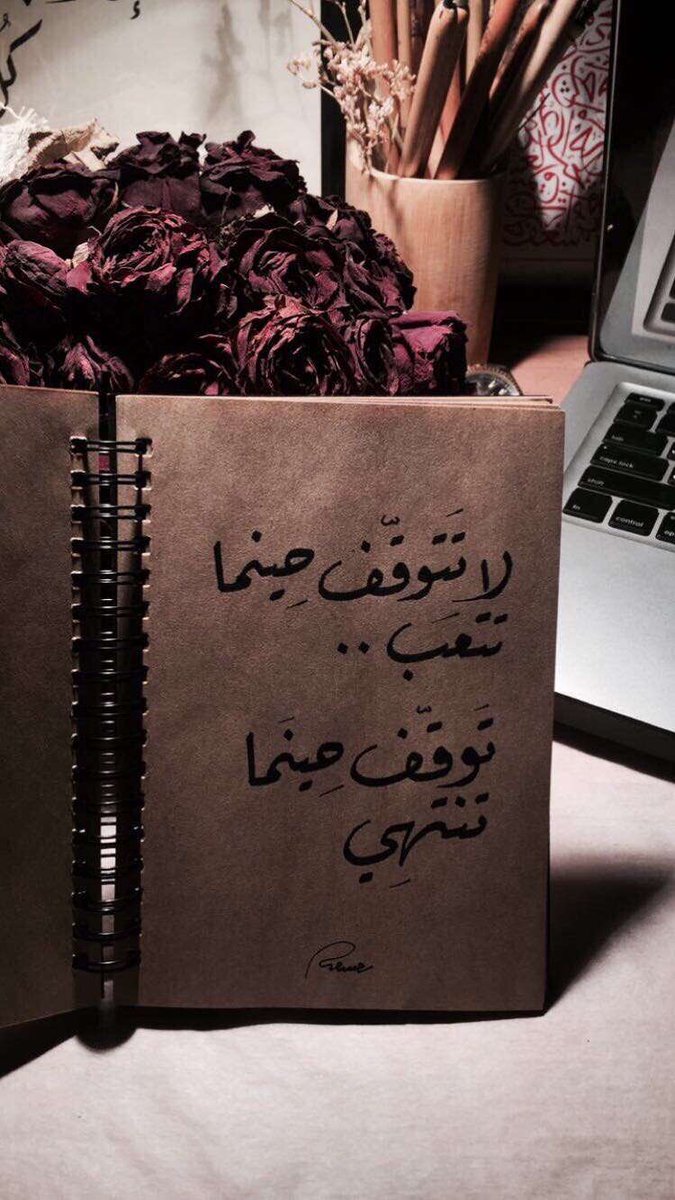 لا تَتَوقّف حِينما
تتعَب ..
تَوقّف حِينَما
تنتهِي
tab
caps lock
shift
fn
control